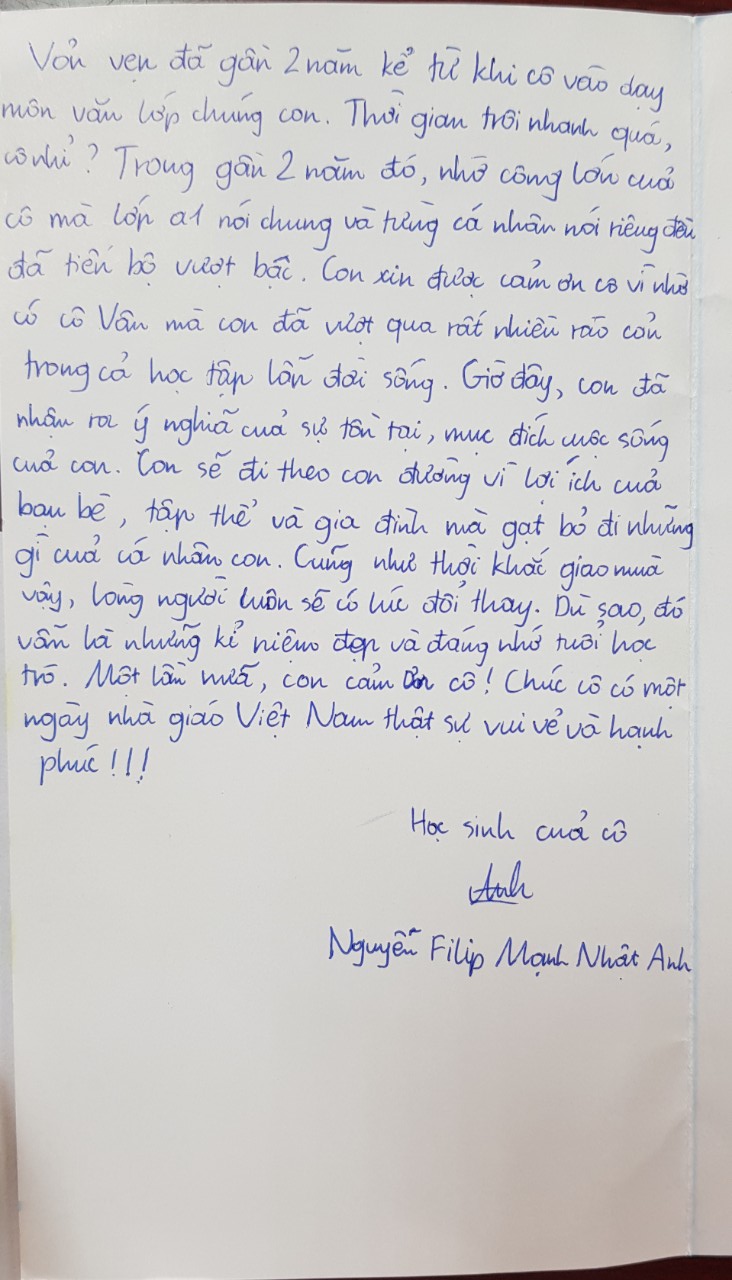 Vỏn vẹn đã gần 2 năm kể từ khi cô vào dạy
môn văn lớp chúng con. Thời gian trôi nhanh quá,
cô nhỉ? Trong gần 2 năm đó, nhờ công lớn của
cô mà lớp a1 nói chung và từng cá nhân nói riêng đều
đã tiến bộ vượt bậc. Con xin được cảm ơn cô vì nhờ
có cô Vân mà con đã vượt qua rất nhiều rào cản
trong cả học tập lẫn đời sống. Giờ đây, con đã
nhận ra ý nghĩa của sự tồn tại, mục đích cuộc sống
của con. Con sẽ đi theo con đường vì lợi ích của
bạn bè, tập thể và gia đình mà gạt bỏ đi những
gì của cá nhân con. Cũng như thời khắc giao mùa
vậy, lòng người luôn sẽ có lúc đổi thay. Dù sao, đó
vẫn là những kỉ niệm đẹp và đáng nhớ tuổi học
trò. Một lần nữa, con cảm ơn cô! Chúc cô có một
ngày nhà giáo Việt Nam thật sự vui vẻ và hạnh
phúc!!!
Học sinh của cô
Anh
Nguyễn Filip Mạnh Nhật Anh